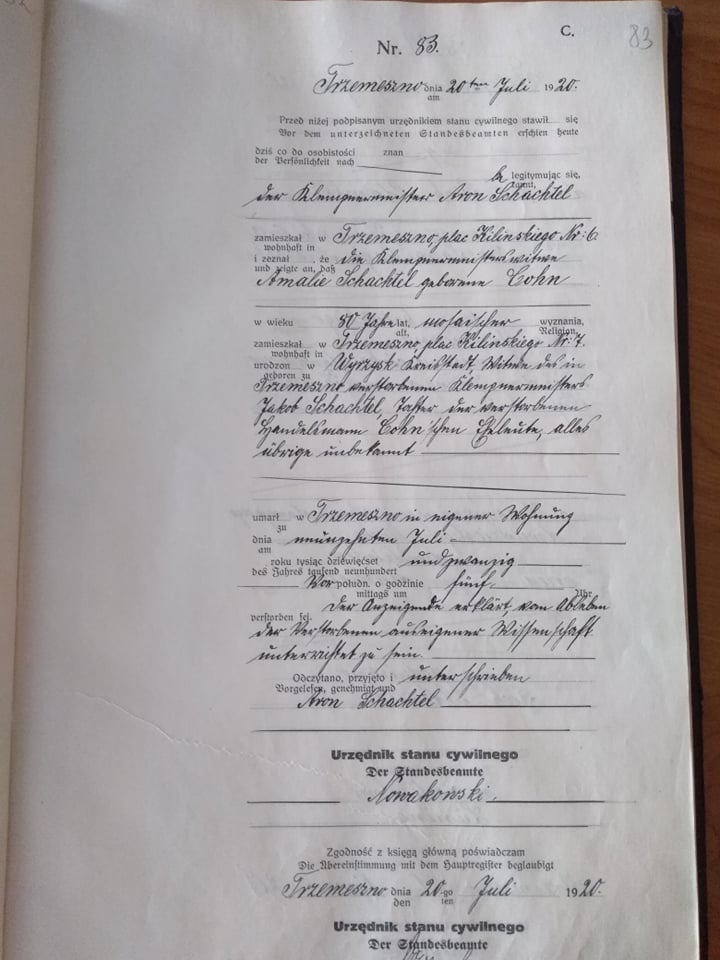 C.
83
Nr. 83.
Trzemeszno dnia am 20ten Juli 1920.
Przed niżej podpisanym urzędnikiem stanu cywilnego stawił się
Vor dem unterzeichneten Standesbeamten erschien heute
dziś co do osobistości znan
der Persönlichkeit nach
be legitymując się,
kannt,
der Klempnermeister Aron Schachtel
zamieszkał w Trzemeszno, plac Kilinskiego Nr. 6.
wohnhaft in
i zeznał że die Klempnermeisterswitwe
und zeigte an, daß
Amalie Schachtel geborene Cohn
w wieku 80 Jahre lat, mosaischer wyznania,
alt, Religion,
zamieszkał w Trzemeszno, plac Kilinskiego Nr. 7.
wohnhaft in
urodzon w Wyrzysk Kreisstadt, Witwe des in
geboren zu
Trzemeszno verstorbenen Klempnermeisters
Jakob Schachtel, Tochter der verstorbenen
Handelsmann Cohn'schen Eheleute, alles
übrige unbekannt
umarł w Trzemeszno in eigener Wohnung
zu
dnia neunzehnten Juli
am
roku tysiąc dziewięćset undzwanzig
des Jahres tausend neunhundert
Vor połudn. o godzinie fünf
mittags um Uhr
Der Anzeigende erklärt, vom Ableben
verstorben sei.
der Verstorbenen aus eigener Wissenschaft
unterrichtet zu sein.
Odczytano, przyjęto i unterschrieben
Vorgelesen, genehmigt und
Aron Schachtel
Urzędnik stanu cywilnego
Der Standesbeamte
Nowakowski.
Zgodność z księgą główną poświadczam
Die Übereinstimmung mit dem Hauptregister beglaubigt
Trzemeszno dnia 20-go Juli 1920.
den ten
Urzędnik stanu cywilnego
Der Standesbeamte